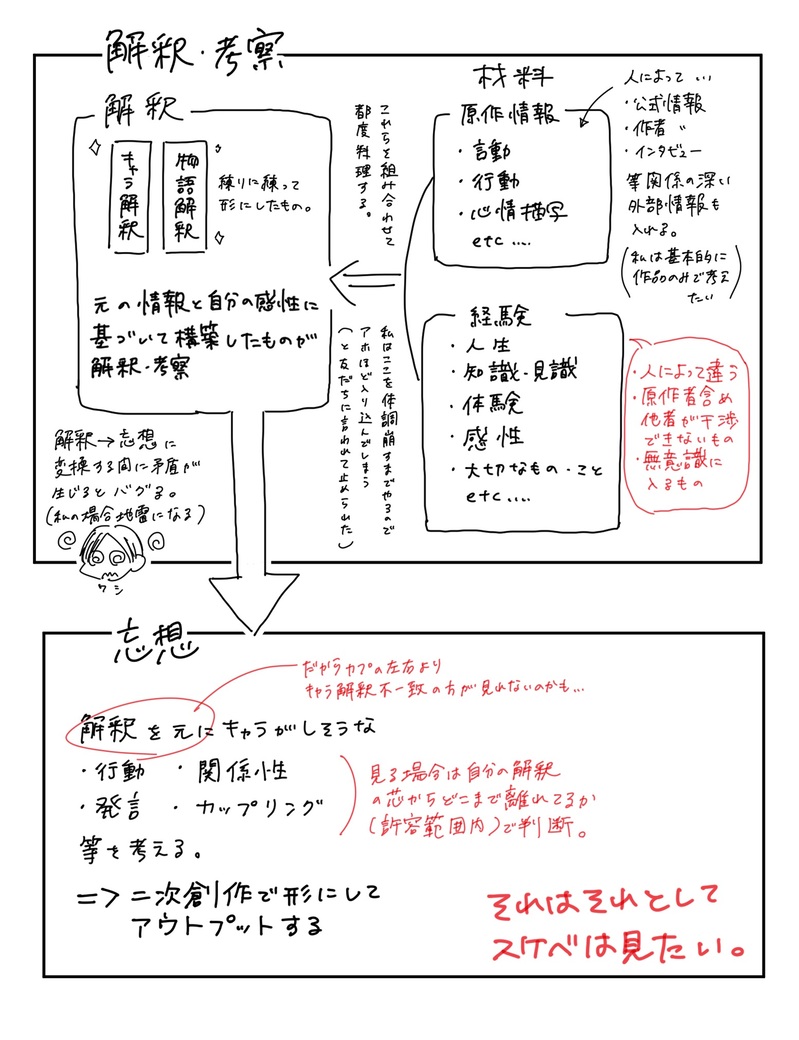 解釈・考察
解釈
キャラ解釈
物語解釈
練りに練って
形にしたもの。
元の情報と自分の感性に
基づいて構築したものが
解釈・考察
これらを組み合わせて
都度料理する。
材料
原作情報
・言動
・行動
・心情描写
etc....
人によって…
・公式情報
・作者 〃
・インタビュー
等関係の深い
外部情報も
入れる。
(私は基本的に
作品のみで考え
たい)
経験
・人生
・知識・見識
・体験
・感性
・大切なもの・こと
etc....
・人によって違う
・原作者含め
他者が干渉
できないもの
・無意識に
入るもの
私はここを体調崩すまでやるので
アホほど入り込んでしまう
(と友だちに言われて止められた)
解釈→妄想に
変換する間に矛盾が
生じるとバグる。
(私の場合地雷になる)
ワシ
妄想
だからカプの左右より
キャラ解釈不一致の方が見れないのかも…
解釈を元にキャラがしそうな
・行動 ・関係性
・発言 ・カップリング
等を考える。
見る場合は自分の解釈
の芯からどこまで離れてるか
(許容範囲内)で判断。
=> 二次創作で形にして
アウトプットする
それはそれとして
スケベは見たい。